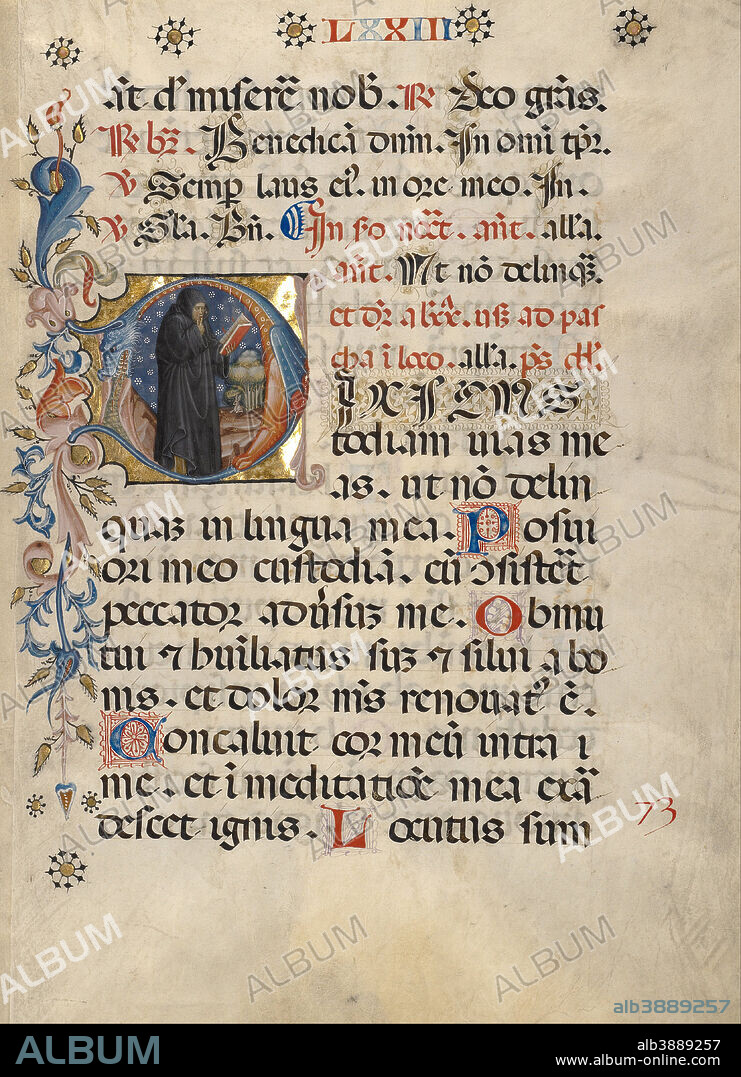 LXXIII
at d' miserē nob. R Deo gr̄as.
R br̄. Benedicā dnm̄. In omi tp̄r.
V Semp laus ei. in ore meo. In.
V Gl̄a. Bn̄. In ſcō noct̄. an̄t. all'a.
an̄t. Ut nō delinq̄.
et dr̄ a lxx. usq ad pas
cha ī loco. all'a. p̄s dd.
DIXI CUS
todiam uias me
as. ut nō delin
quaz in lingua mea. Posui
ori meo custodiā. cū ɔsistēt
peccator adūsuz me. Obmu
tui ⁊ huīliatus suz ⁊ silui a bo
nis. et dolor m̄s renouat' ē.
Concaluit cor meū intra ī
me. et ī meditatiōe mea exā
descet ignis. Locutus sum
73
ALBUM
alb3889257
ALBUM
alb3889257
www.album-online.com